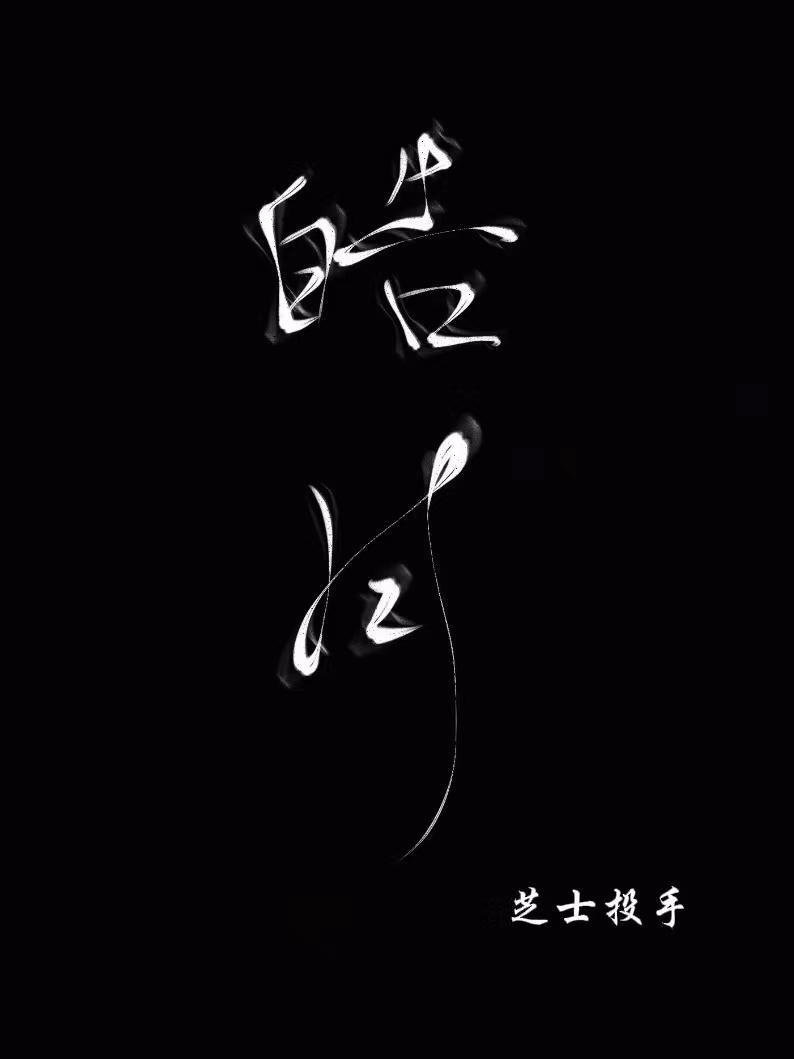 皓河
芝士投手